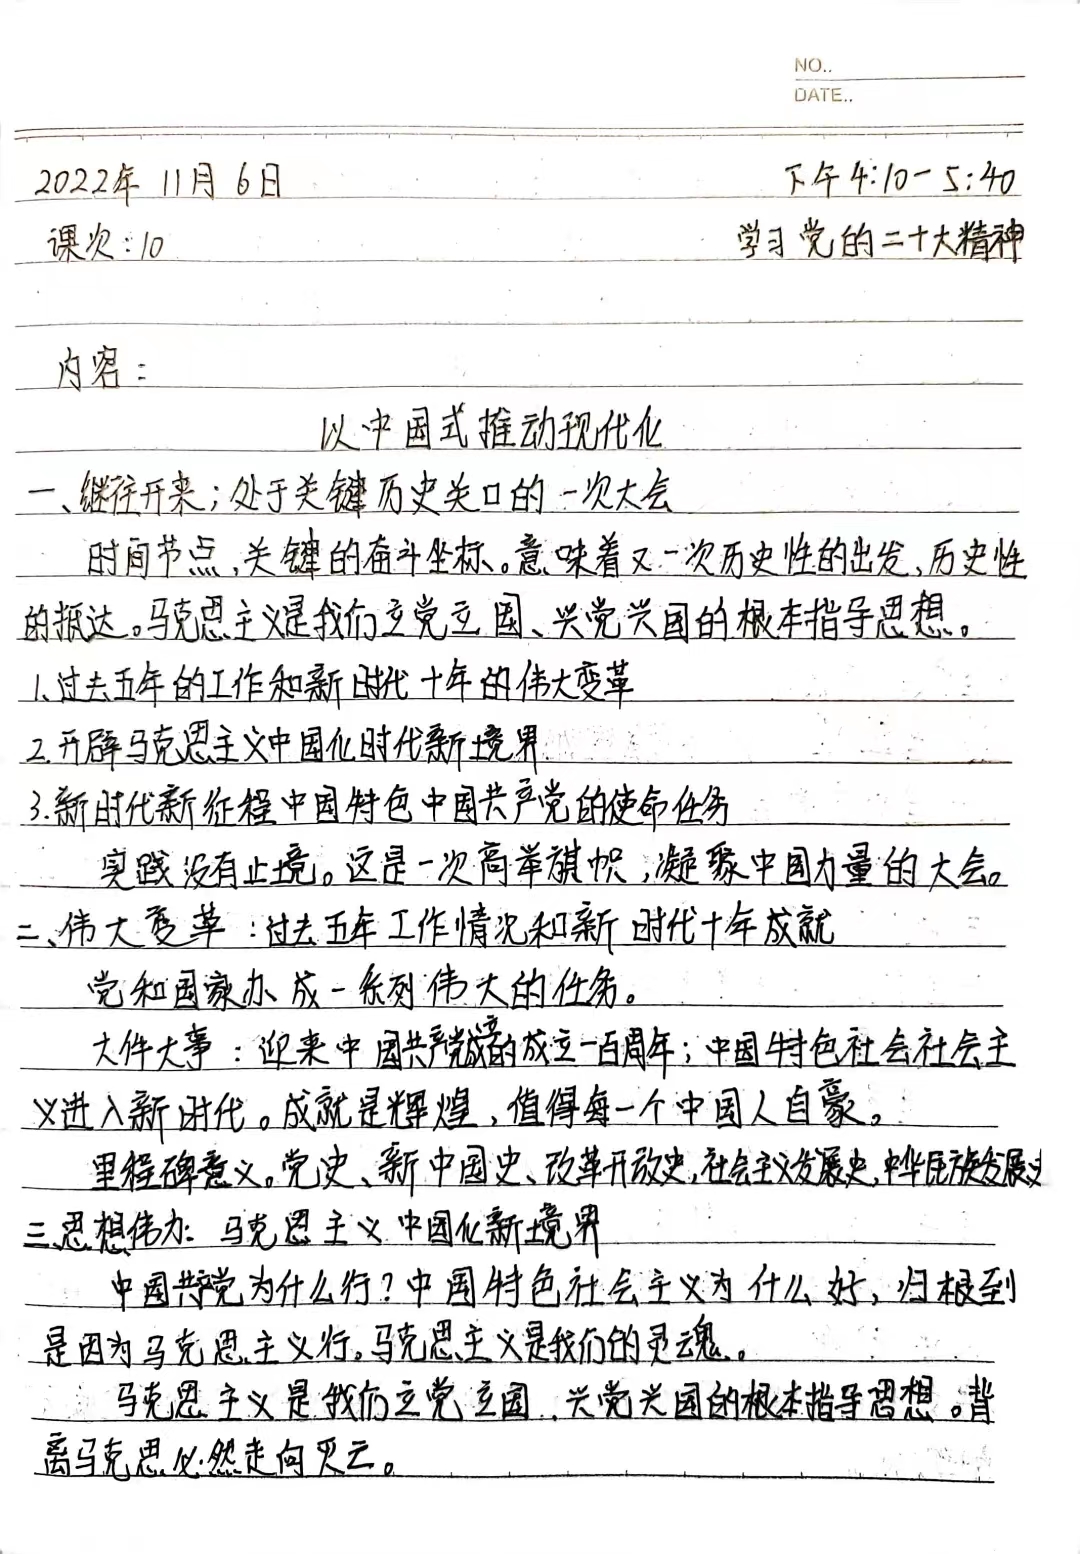 NO..
DATE..
2022年 11月 6日 下午 4:10-5:40
课次:10 学习党的二十大精神
内容:
以中国式推动现代化
一、继往开来;处于关键历史关口的一次大会
时间节点,关键的奋斗坐标。意味着又一次历史性的出发,历史性
的抵达。马克思主义是我们立党立国、兴党兴国的根本指导思想。
1.过去五年的工作和新时代十年的伟大变革
2.开辟马克思主义中国化时代新境界
3.新时代新征程中国特色中国共产党的使命任务
实践没有止境。这是一次高举旗帜,凝聚中国力量的大会。
二、伟大变革:过去五年工作情况和新时代十年成就
党和国家办成一系列伟大的任务。
大件大事:迎来中国共产党的成立一百周年;中国特色社会社会主
义进入新时代。成就是辉煌,值得每一个中国人自豪。
里程碑意义。党史、新中国史、改革开放史,社会主义发展史,中华民族发展史
三.思想伟力:马克思主义中国化新境界
中国共产党为什么行?中国特色社会主义为什么好,归根到
是因为马克思主义行。马克思主义是我们的灵魂。
马克思主义是我们立党立国、兴党兴国的根本指导思想。背
离马克思必然走向灭亡。